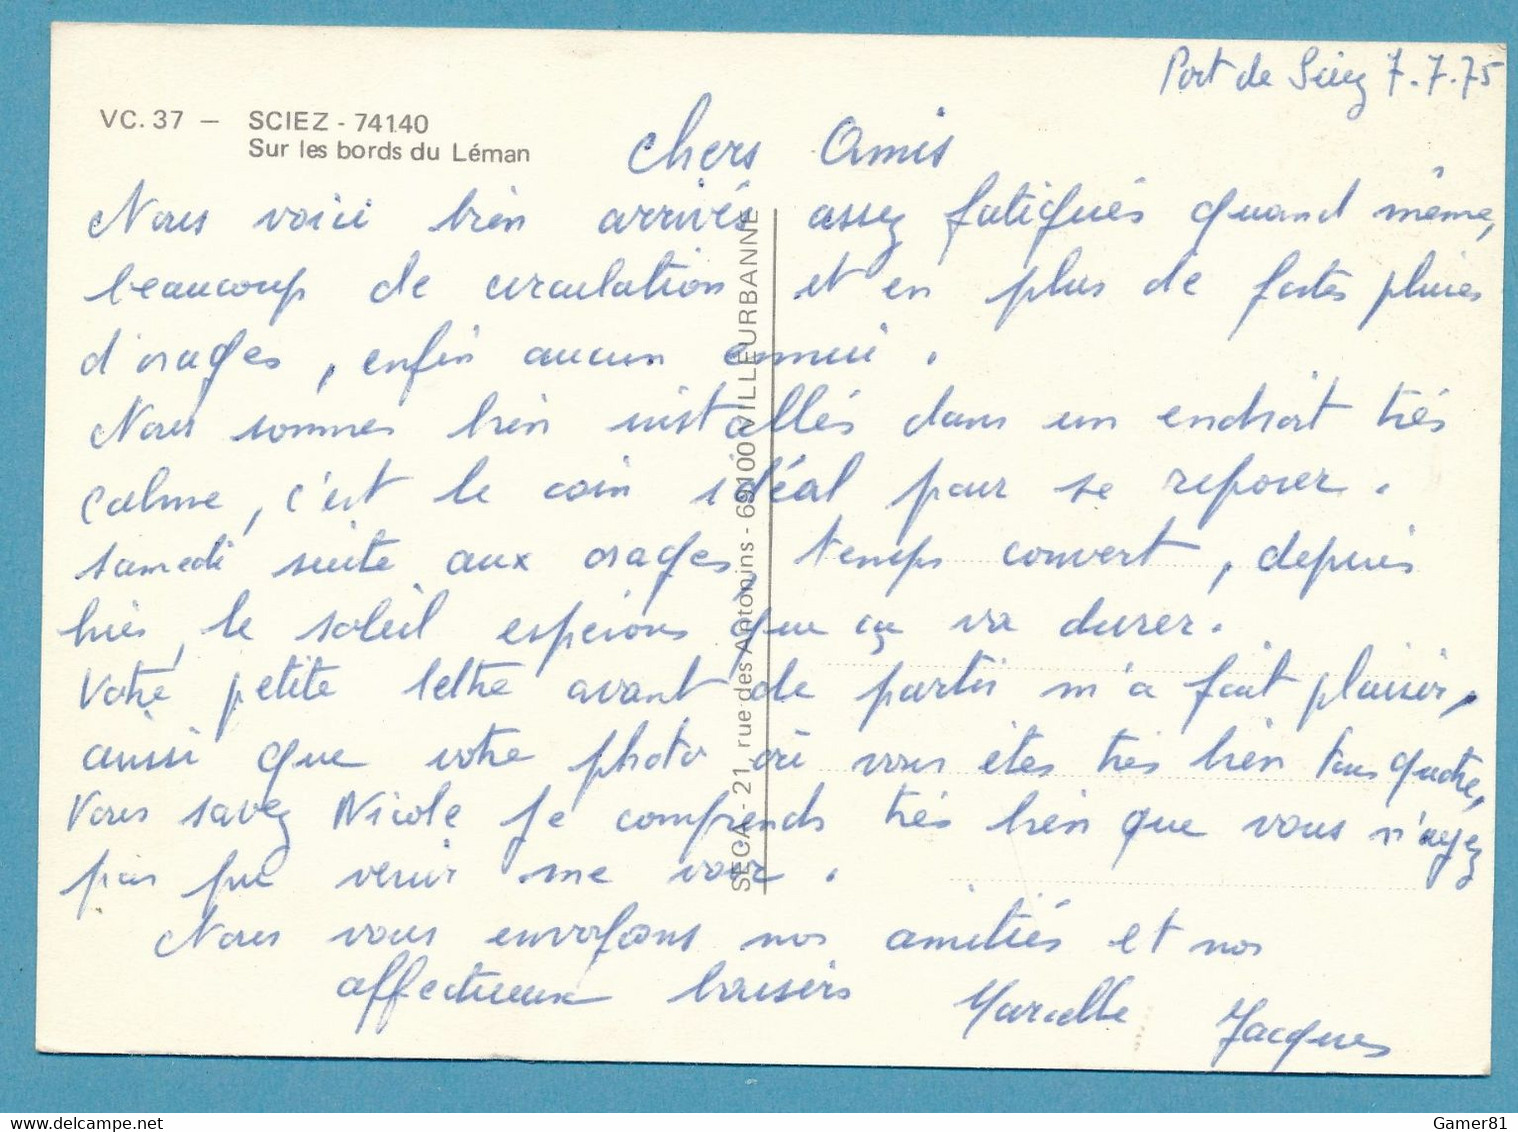 Port de Sciez 7.7.75
VC. 37 — SCIEZ - 74140
Sur les bords du Léman
Chers Amis
Nous voici bien arrivés assez fatigués quand même,
beaucoup de circulation et en plus de fortes pluies
d'orages, enfin aucun ennui.
Nous sommes bien installés dans un endroit très
calme, c'est le coin idéal pour se reposer.
samedi suite aux orages, temps couvert, depuis
hier, le soleil espérons que ça va durer.
Votre petite lettre avant de partir m'a fait plaisir,
aussi que votre photo où vous êtes très bien tous quatre,
Vous savez Nicole je comprends très bien que vous n'ayez
pas pu venir me voir.
Nous vous envoyons nos amitiés et nos
affectueux baisers Marcelle Jacques
SECA - 21, rue des Antonins - 69100 VILLEURBANNE
Gamer81